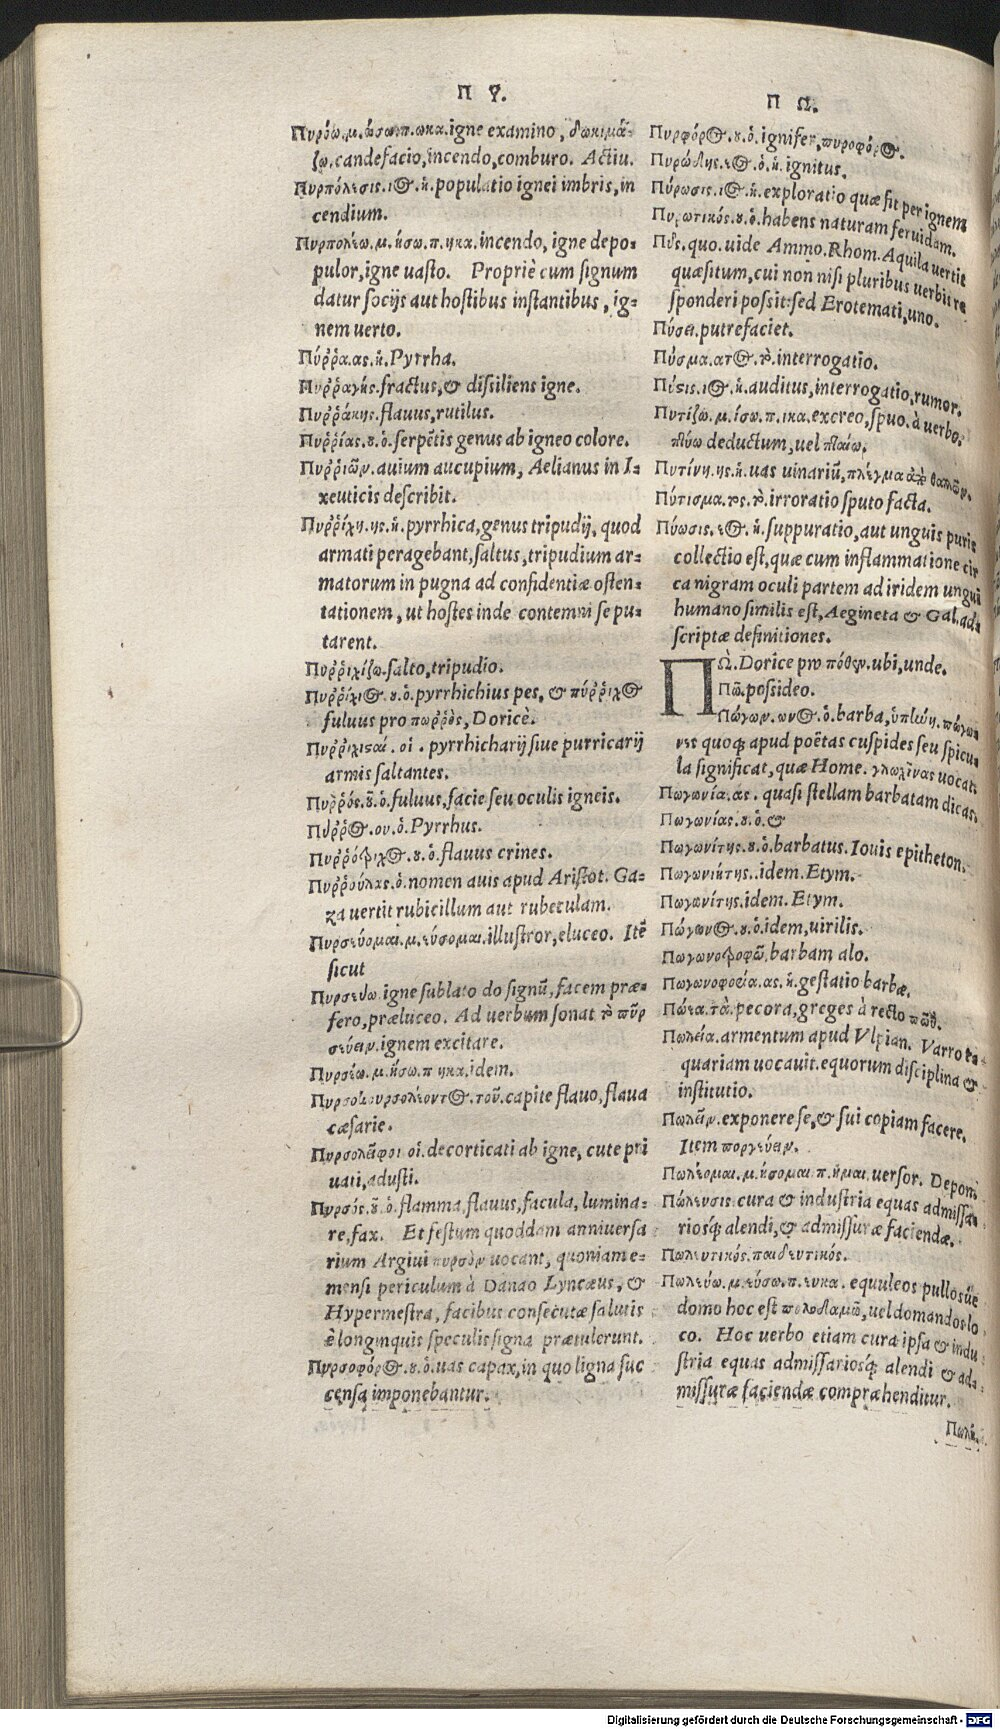 Π Υ.
Πυρόω.μ.ώσω.π.ωκα.igne examino, δωκιμά-
ζω.candefacio,incendo,comburo. Actiu.
Πυρπόλησις.ιος.ἡ.populatio ignei imbris,in
cendium.
Πυρπολέω.μ.ήσω.π.ηκα.incendo, igne depo-
pulor,igne uasto. Propriè cum signum
datur socijs aut hostibus instantibus, ig-
nem uerto.
Πύῤῥα.ας.ἡ.Pyrrha.
Πυῤῥαγὴς.fractus,& dissiliens igne.
Πυῤῥάκης.flauus,rutilus.
Πυῤῥίας.ου.ὁ.serpẽtis genus ab igneo colore.
Πυῤῥιῶν.auium aucupium, Aelianus in I-
xeuticis describit.
Πυῤῥίχη.ης.ἡ.pyrrhica,genus tripudij, quod
armati peragebant,saltus,tripudium ar-
matorum in pugna ad confidentiæ osten-
tationem, ut hostes inde contemni se pu-
tarent.
Πυῤῥιχίζω.salto,tripudio.
Πυῤῥίχιος.ου.ὁ.pyrrhichius pes, & πύῤῥιχος
fuluus pro πωῤῥὸς, Doricè.
Πυῤῥιχισαί. οἱ. pyrrhicharij siue purricarij
armis saltantes.
Πυῤῥός.οῦ.ὁ.fuluus,facie seu oculis igneis.
Πύῤῥος.ου.ὁ.Pyrrhus.
Πυῤῥότριχος.ου.ὁ.flauus crines.
Πυῤῥούλας.ὁ.nomen auis apud Aristot. Ga-
za uertit rubicillum aut rubeculam.
Πυρσεύομαι.μ.εύσομαι.illustror,eluceo. Itẽ
sicut
Πυρσεύω.igne sublato do signũ,facem præ-
fero,præluceo. Ad uerbum sonat τὸ πῦρ
σεύειν.ignem excitare.
Πυρσέω.μ.ήσω.π ηκα.idem.
capite flauo,flaua
cæsarie.
οἱ.decorticati ab igne, cute pri
uati,adusti.
Πυρσός.οῦ.ὁ.flamma,flauus,facula, lumina-
re,fax. Et festum quoddam anniuersa
rium Argiui πυρσὸν uocant, quoniam e-
mensi periculum à Danao Lyncæus, &
Hypermestra, facibus consecutæ salutis
è longinquis speculis signa prætulerunt.
Πυρσοφόρος.ου.ὁ.uas capax,in quo ligna suc
censa imponebantur.
Π Ω.
Πυρφόρος.ου.ὁ.ignifer,πυροφόρος.
Πυρώδης.εος.ὁ.ἡ.ignitus.
Πύρωσις.ιος.ἡ.exploratio quæ fit per ignem
Πυρωτικός.ου.ὁ.habens naturam feruidam.
quo.uide Ammo. Rhom. Aquila uertit
quæsitum,cui non nisi pluribus uerbis re
sponderi possit:sed Erotemati,uno.
Πύσει.putrefaciet.
Πύσμα.ατος.τὸ.interrogatio.
Πύσις.ιος.ἡ.auditus,interrogatio,rumor.
Πυτίζω.μ.ίσω.π.ικα.excreo,spuo.à uerbo.
πτύω deductum,uel πταίω.
Πυτίνη.ης.ἡ.uas uinariũ,πλέγμα ἀπὸ θαλλῶν.
Πύτισμα.τος.τὸ.irroratio sputo facta.
Πύωσις.εος.ἡ.suppuratio,aut unguis puris
collectio est,quæ cum inflammatione cir
ca nigram oculi partem ad iridem ungui
humano similis est, Aegineta & Gal.ad-
scriptæ definitiones.
ΠῺ. Dorice pro πόθεν.ubi,unde.
Πῶ.possideo.
Πώγων.ωνος.ὁ.barba, πώγων
νες quoque apud poëtas cuspides seu spicu-
la significat,quæ Home. γλωχῖνας uocat.
Πωγωνία.ας. quasi stellam barbatam dicas.
Πωγωνίας.ου.ὁ.&
Πωγωνίτης.ου.ὁ.barbatus. Iouis epitheton.
Πωγωνιήτης.idem. Etym.
Πωγωνίτης.idem. Etym.
Πώγωνος.ου.ὁ.idem,uirilis.
Πωγωνοτροφῶ.barbam alo.
Πωγωνοφορία.ας.ἡ.gestatio barbæ.
Πώεα.τὰ.pecora,greges à recto
Πωλεία.armentum apud Vlpian. Varro
quariam uocauit.equorum disciplina &
institutio.
Πωλεῖν.exponere se,& sui copiam facere.
Item πορνεύειν.
Πωλέομαι.μ.ήσομαι π.ημαι.uersor. Deponẽ
Πώλευσις cura & industria equas admissa-
riosque alendi,& admissuræ faciendæ.
Πωλευτικός.παιδευτικός.
Πωλεύω.μ.εύσω.π.ευκα. equuleos pullosue
domo hoc est πωλοδαμῶ,uel domandos lo
co. Hoc uerbo etiam cura ipsa & indu
stria equas admissariosque alendi & ad-
missuræ faciendæ compræhenditur.
Digitalisierung gefördert durch die Deutsche Forschungsgemeinschaft - DFG